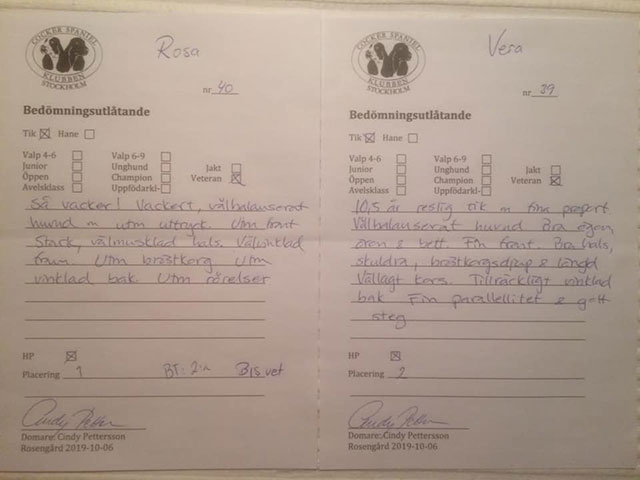 COCKER SPANIEL
KLUBBEN
STOCKHOLM
Rosa
nr 40
Bedömningsutlåtande
Tik ☒ Hane ☐
Valp 4-6 ☐ Valp 6-9 ☐
Junior ☐ Unghund ☐ Jakt ☐
Öppen ☐ Champion ☐ Veteran ☒
Avelsklass ☐ Uppfödarkl- ☐
Så vacker! Vackert, välbalanserat
huvud m utm uttryck. Utm front
Stark, välmusklad hals. Välvinklad
fram. Utm bröstkorg Utm
vinklad bak. Utm rörelser
HP ☒
Placering 1 BT: 2:a BIS vet
Domare: Cindy Pettersson
Rosengård 2019-10-06
COCKER SPANIEL
KLUBBEN
STOCKHOLM
Vera
nr 39
Bedömningsutlåtande
Tik ☒ Hane ☐
Valp 4-6 ☐ Valp 6-9 ☐
Junior ☐ Unghund ☐ Jakt ☐
Öppen ☐ Champion ☐ Veteran ☒
Avelsklass ☐ Uppfödarkl- ☐
10,5 år reslig tik m fina proport
Välbalanserat huvud Bra ögon,
öron & bett. Fin front. Bra hals,
skuldra, bröstkorgsdjup & längd
Vällagt kors. Tillräckligt vinklad
bak Fin parallellitet & gott
steg
HP ☒
Placering 2
Domare: Cindy Pettersson
Rosengård 2019-10-06